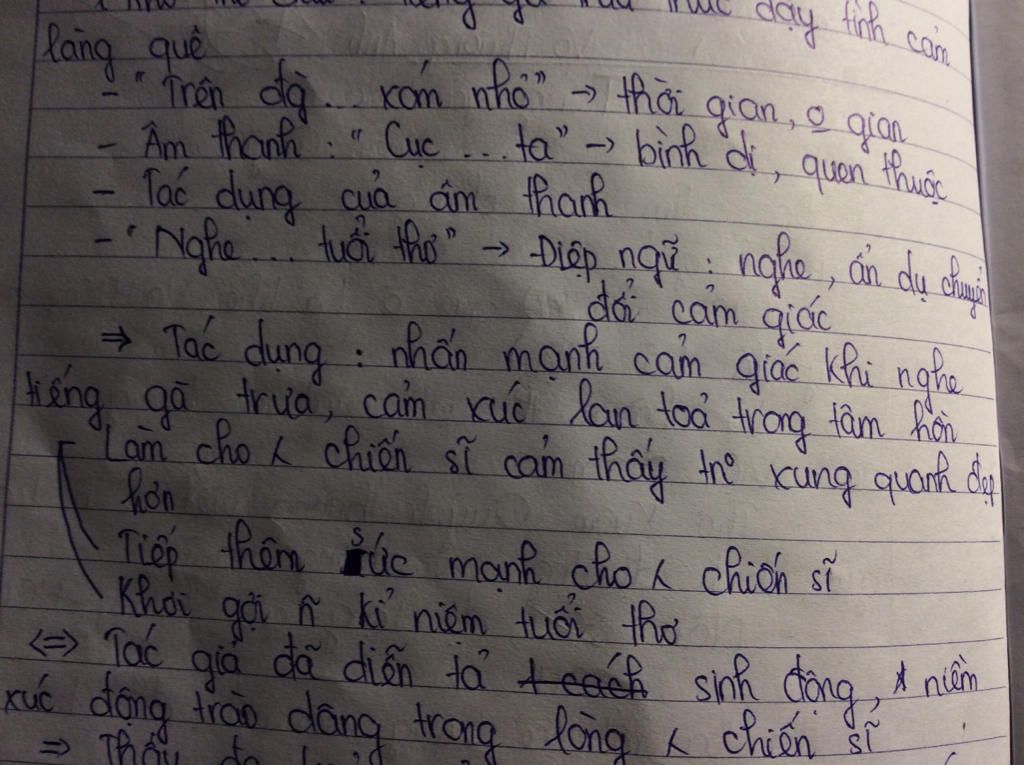 tiếng gà trưa thức dạy tình cảm
làng quê
- "Trên đg ... xóm nhỏ" → thời gian, o gian
- Âm thanh : "Cục ... ta" → bình dị, quen thuộc
- Tác dụng của âm thanh
- "Nghe ... tuổi thơ" → Điệp ngữ : nghe, ẩn dụ chuyển
đổi cảm giác
⇒ Tác dụng : nhấn mạnh cảm giác khi nghe
tiếng gà trưa, cảm xúc lan toả trong tâm hồn
Làm cho < chiến sĩ cảm thấy tn° xung quanh đẹp
hơn
Tiếp thêm sức mạnh cho < chiến sĩ
Khơi gợi ñ kỉ niệm tuổi thơ
<=> Tác giả đã diễn tả sinh động, niềm
xúc động trào dâng trong lòng < chiến sĩ
⇒ Thấy